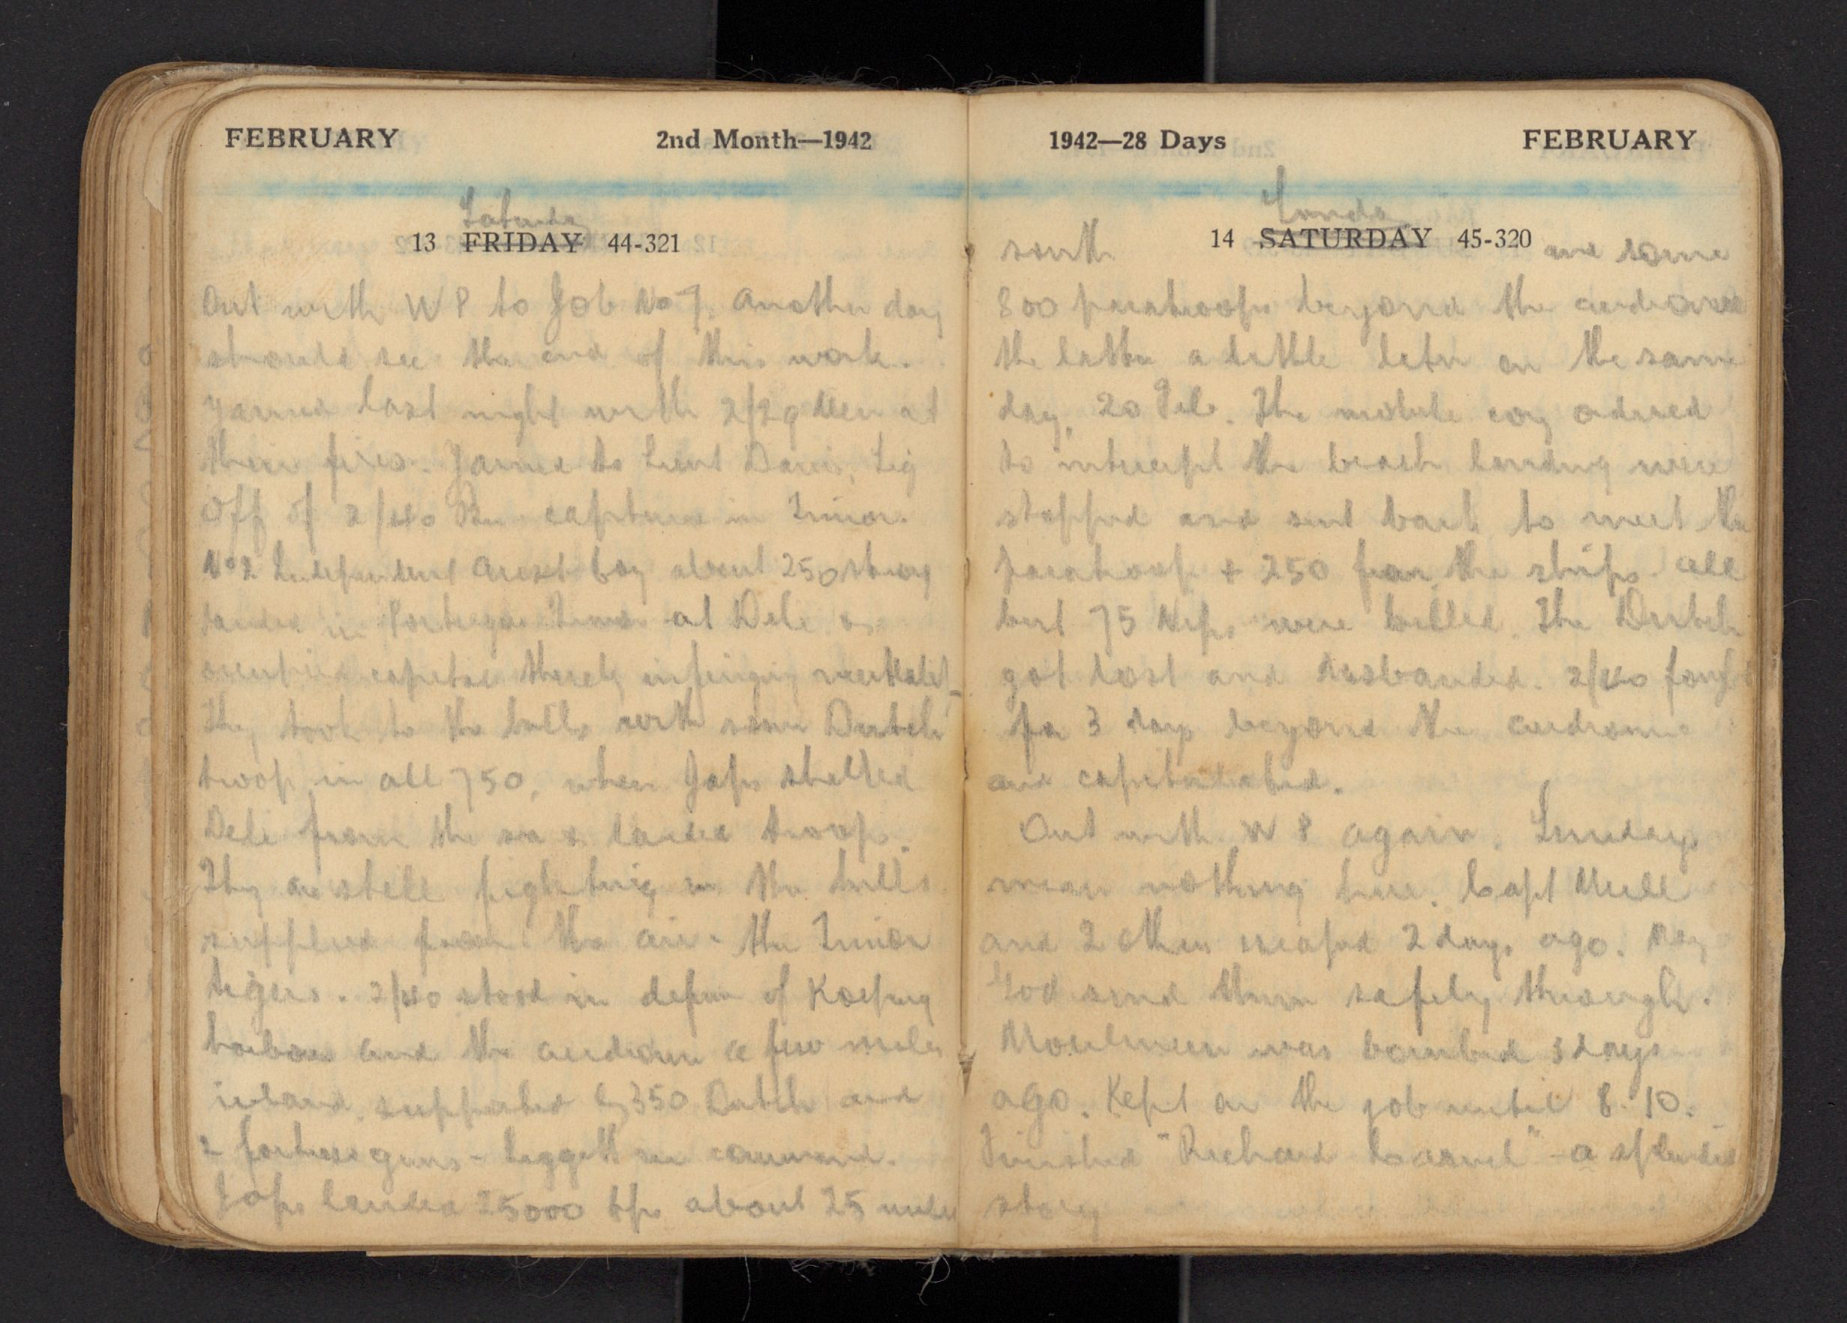 FEBRUARY 2nd Month—1942
Saturda
13 FRIDAY 44-321
Out with WP to Job No 7. Another day
should see the end of this work.
Yarned last night with 2/29 Men at
their fires. Yarned to Lieut Sig
Off of 2/40 Bn captured in Timor.
No 2 Independent Coy about 250 strong
landed in Portugese Timor at Deli
capital thereby infringing
They took to the hills with some Dutch
troops in all 750, when Japs shelled
Deli from the sea & landed troops.
They are still fighting in the hills
supplied from the air - the Timor
tigers. 2/40 stood in defence of Koepang
harbour and the aerdrome a few miles
inland supported by 350 Dutch and
2 fortress guns - Leggett in command.
Japs landed 25000 tps about 25 miles
1942—28 Days FEBRUARY
Sunda
14 SATURDAY 45-320
south and some
800 paratroops beyond the aerdrome
the latter a little later on the same
day, 20 Feb. The mobile coy ordered
to intercept the beach landing were
stopped and sent back to meet the
paratroops & 250 from the ships. All
but 75 Nips were killed. The Dutch
got lost and disbanded. 2/40 fought
for 3 days beyond the aerdrome
and capitulated.
Out with WP again. Sundays
mean nothing here. Capt Mull
and 2 others escaped 2 days ago. May
God send them safely through.
Moulmein was bombed 3 days
ago. Kept on the job until 8.10.
Finished "Richard Carvel" - a splendid
story